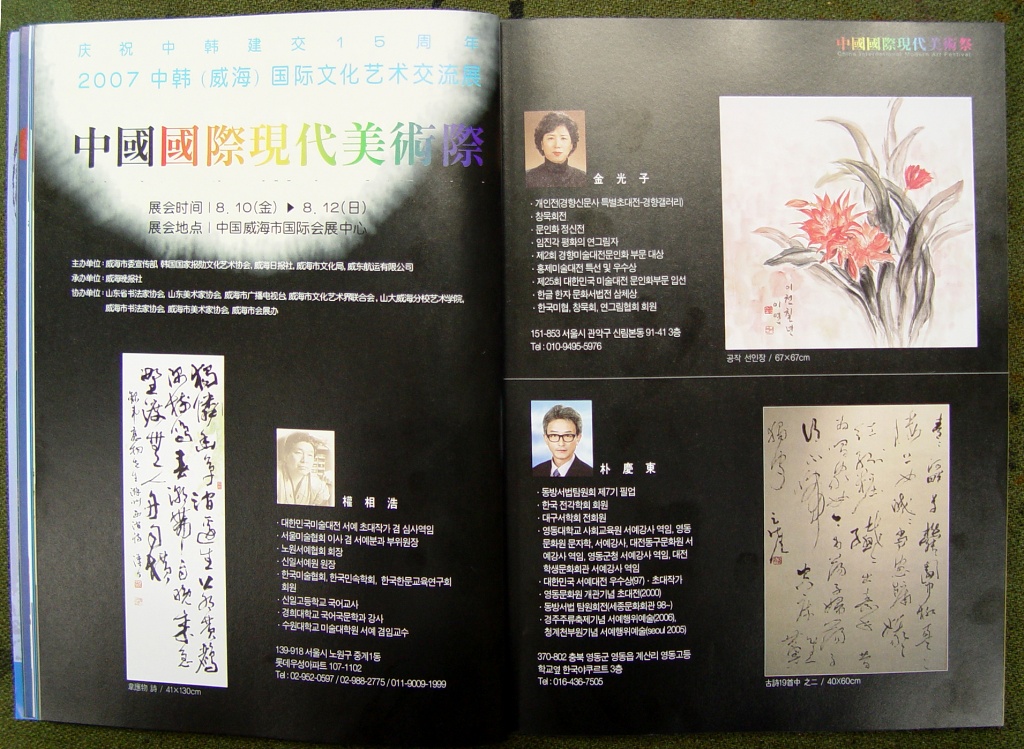 庆祝中韩建交15周年
2007 中韩 (威海) 国际文化艺术交流展
中國國際現代美術際
展会时间 | 8. 10(金) ▶ 8. 12(日)
展会地点 | 中国威海市国际会展中心
主办单位 : 威海市委宣传部, 韩国国家报勋文化艺术协会, 威海日报社, 威海市文化局, 威东航运有限公司
承办单位 : 威海晚报社
协办单位 : 山东省书法家协会, 山东美术家协会, 威海市广播电视台, 威海市文化艺术界联合会, 山大威海分校艺术学院,
威海市书法家协会, 威海市美术家协会, 威海市会展办
獨憐幽草澗邊生上有黃鸝
深樹鳴春潮帶雨晚來急
野渡無人舟自橫
韋應物 詩 / 41×130cm
楊相浩
· 대한민국미술대전 서예 초대작가 겸 심사역임
· 서울미술협회 이사 겸 서예분과 부위원장
· 노원서예협회 회장
· 신일서예원 원장
· 한국미술협회, 한국민속학회, 한국한문교육연구회
회원
· 신일고등학교 국어교사
· 경희대학교 국어국문학과 강사
· 수원대학교 미술대학원 서예 겸임교수
139-918 서울시 노원구 중계1동
롯데우성아파트 107-1102
Tel : 02-952-0597 / 02-988-2775 / 011-9009-1999
中國國際現代美術祭
China International Modern Art Festival
金光子
· 개인전(경향신문사 특별초대전-경향갤러리)
· 창묵회전
· 문인화 정신전
· 임진각 평화의 연그림자
· 제2회 경향미술대전문인화 부문 대상
· 홍제미술대전 특선 및 우수상
· 제25회 대한민국 미술대전 문인화부문 입선
· 한글 한자 문화서법전 삼체상
· 한국미협, 창묵회, 연그림협회 회원
151-853 서울시 관악구 신림본동 91-41 3층
Tel : 010-9495-5976
이천칠년
공작 선인장 / 67×67cm
朴慶東
· 동방서법탐원회 제7기 필업
· 한국 전각학회 회원
· 대구서학회 전회원
· 영동대학교 사회교육원 서예강사 역임, 영동
문화원 문자학, 서예강사, 대전동구문화원 서
예강사 역임, 영동군청 서예강사 역임, 대전
학생문화회관 서예강사 역임
· 대한민국 서예대전 우수상(97) · 초대작가
· 영동문화원 개관기념 초대전(2000)
· 동방서법 탐원회전(세종문화회관 98~)
· 경주주류축제기념 서예행위예술(2006),
청계천부원기념 서예행위예술(seoul 2005)
370-802 충북 영동군 영동읍 계산리 영동고등
학교옆 한국야쿠르트 3층
Tel : 016-436-7505
古詩19首中 之二 / 40×60cm